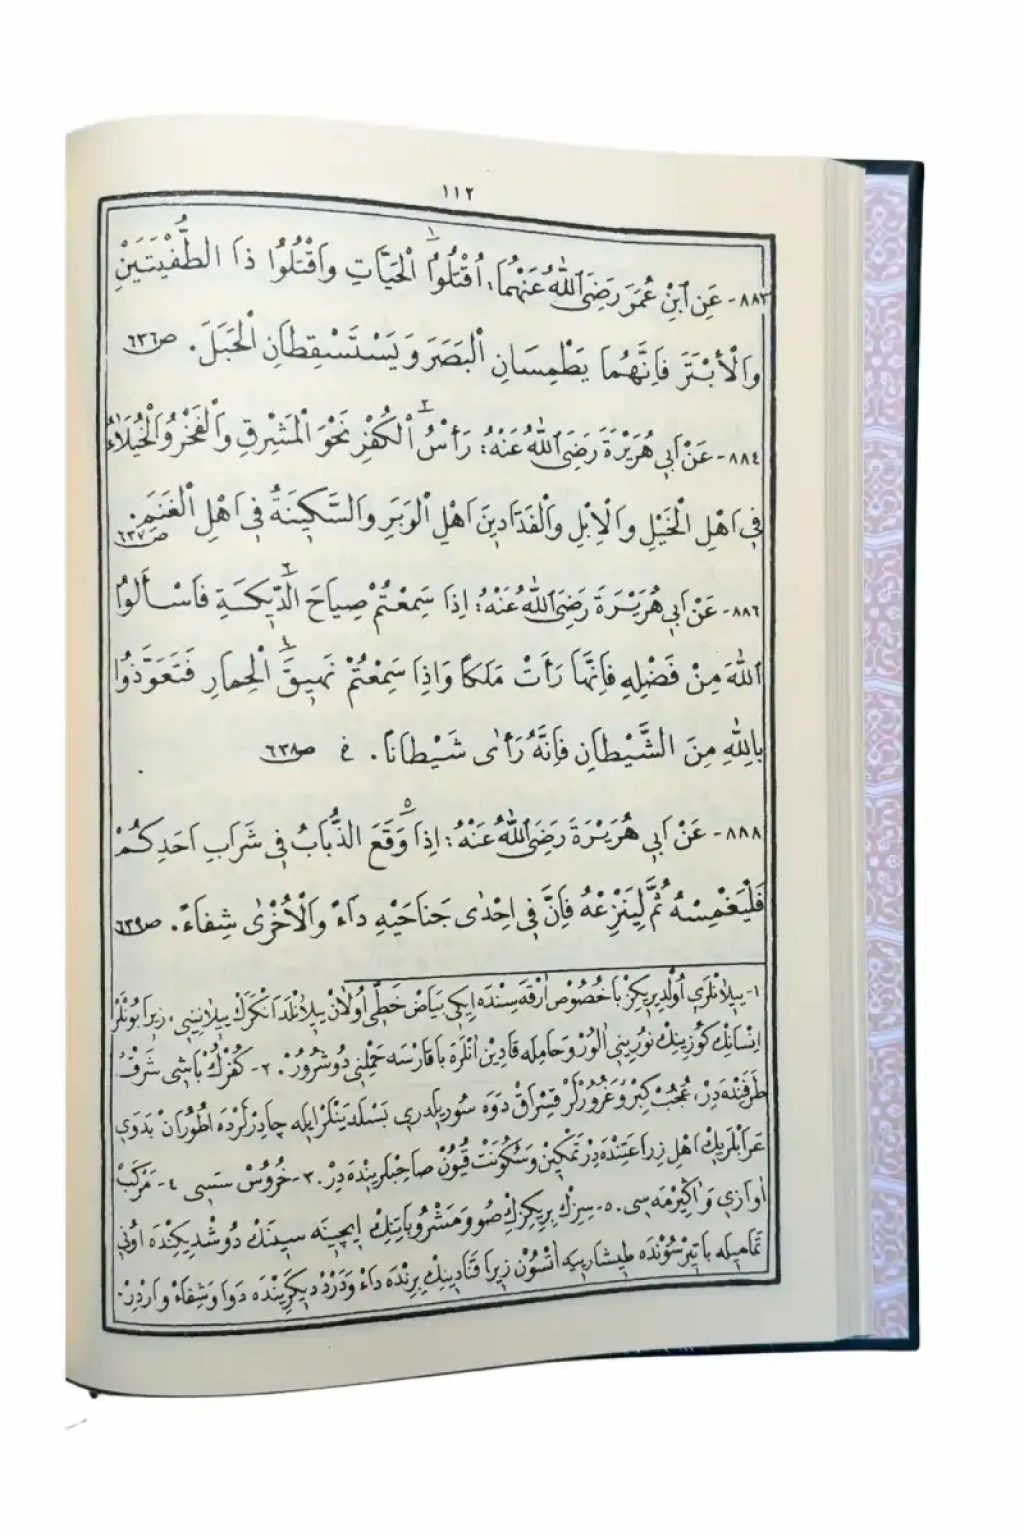 ١١٢
٨٨٣- عَنِ ابْنِ عُمَرَ رَضِيَ اللّٰهُ عَنْهُمَا: اُقْتُلُوا١ الْحَيَّاتِ وَاقْتُلُوا ذَا الطُّفْيَتَيْنِ
وَالْاَبْتَرَ فَاِنَّهُمَا يَطْمِسَانِ الْبَصَرَ وَيَسْتَسْقِطَانِ الْحَبَلَ. ص٦٣٦
٨٨٤- عَنْ اَبِي هُرَيْرَةَ رَضِيَ اللّٰهُ عَنْهُ: رَأْسُ٢ الْكُفْرِ نَحْوَ الْمَشْرِقِ وَالْفَخْرُ وَالْخُيَلَاءُ
فِي اَهْلِ الْخَيْلِ وَالْاِبِلِ وَالْفَدَّادِينَ اَهْلِ الْوَبَرِ وَالسَّكِينَةُ فِي اَهْلِ الْغَنَمِ. ص٦٣٧
٨٨٦- عَنْ اَبِي هُرَيْرَةَ رَضِيَ اللّٰهُ عَنْهُ: اِذَا سَمِعْتُمْ صِيَاحَ الدِّيَكَةِ٣ فَاسْأَلُوا
اللّٰهَ مِنْ فَضْلِهِ فَاِنَّهَا رَأَتْ مَلَكًا وَاِذَا سَمِعْتُمْ نَهِيقَ٤ الْحِمَارِ فَتَعَوَّذُوا
بِاللّٰهِ مِنَ الشَّيْطَانِ فَاِنَّهُ رَأٰى شَيْطَانًا. ص٦٣٨
٨٨٨- عَنْ اَبِي هُرَيْرَةَ رَضِيَ اللّٰهُ عَنْهُ: اِذَا وَقَعَ٥ الذُّبَابُ فِي شَرَابِ اَحَدِكُمْ
فَلْيَغْمِسْهُ ثُمَّ لِيَنْزِعْهُ فَاِنَّ فِي اِحْدٰى جَنَاحَيْهِ دَاءً وَالْاُخْرٰى شِفَاءً. ص٦٣٩
١- ييلانلري اولديريكز باخصوص ارقه سنده ايكي بياض خطي اولان ييلانلدا انكرك ييلانيني. زيرا بونلر
انسانك كوزينك نوريني الور و حامله قادين انلره باقارسه حملني دوشرور. ٢- كفرك باشي شرق
طرفنده در، عجب كبر و غرورلر قسراق دوه سوريلدري بسله ينلر ايله چادرلرده اوطوران بدوي
عرابلريك اهل زراعتنده در تمكين و سكونت قيون صاحبلرينده در. ٣- خروس سسي ٤- مركب
اوازي و اكيرمه سي. ٥- سزك بريكزك صو و مشروباتنك ايچينه سينك دوشديكنده اوني
تماميله باتيرسونده طيشاريه اتسون زيرا قنادينك برنده داء و درد ديكرينده دوا و شفاء واردر.